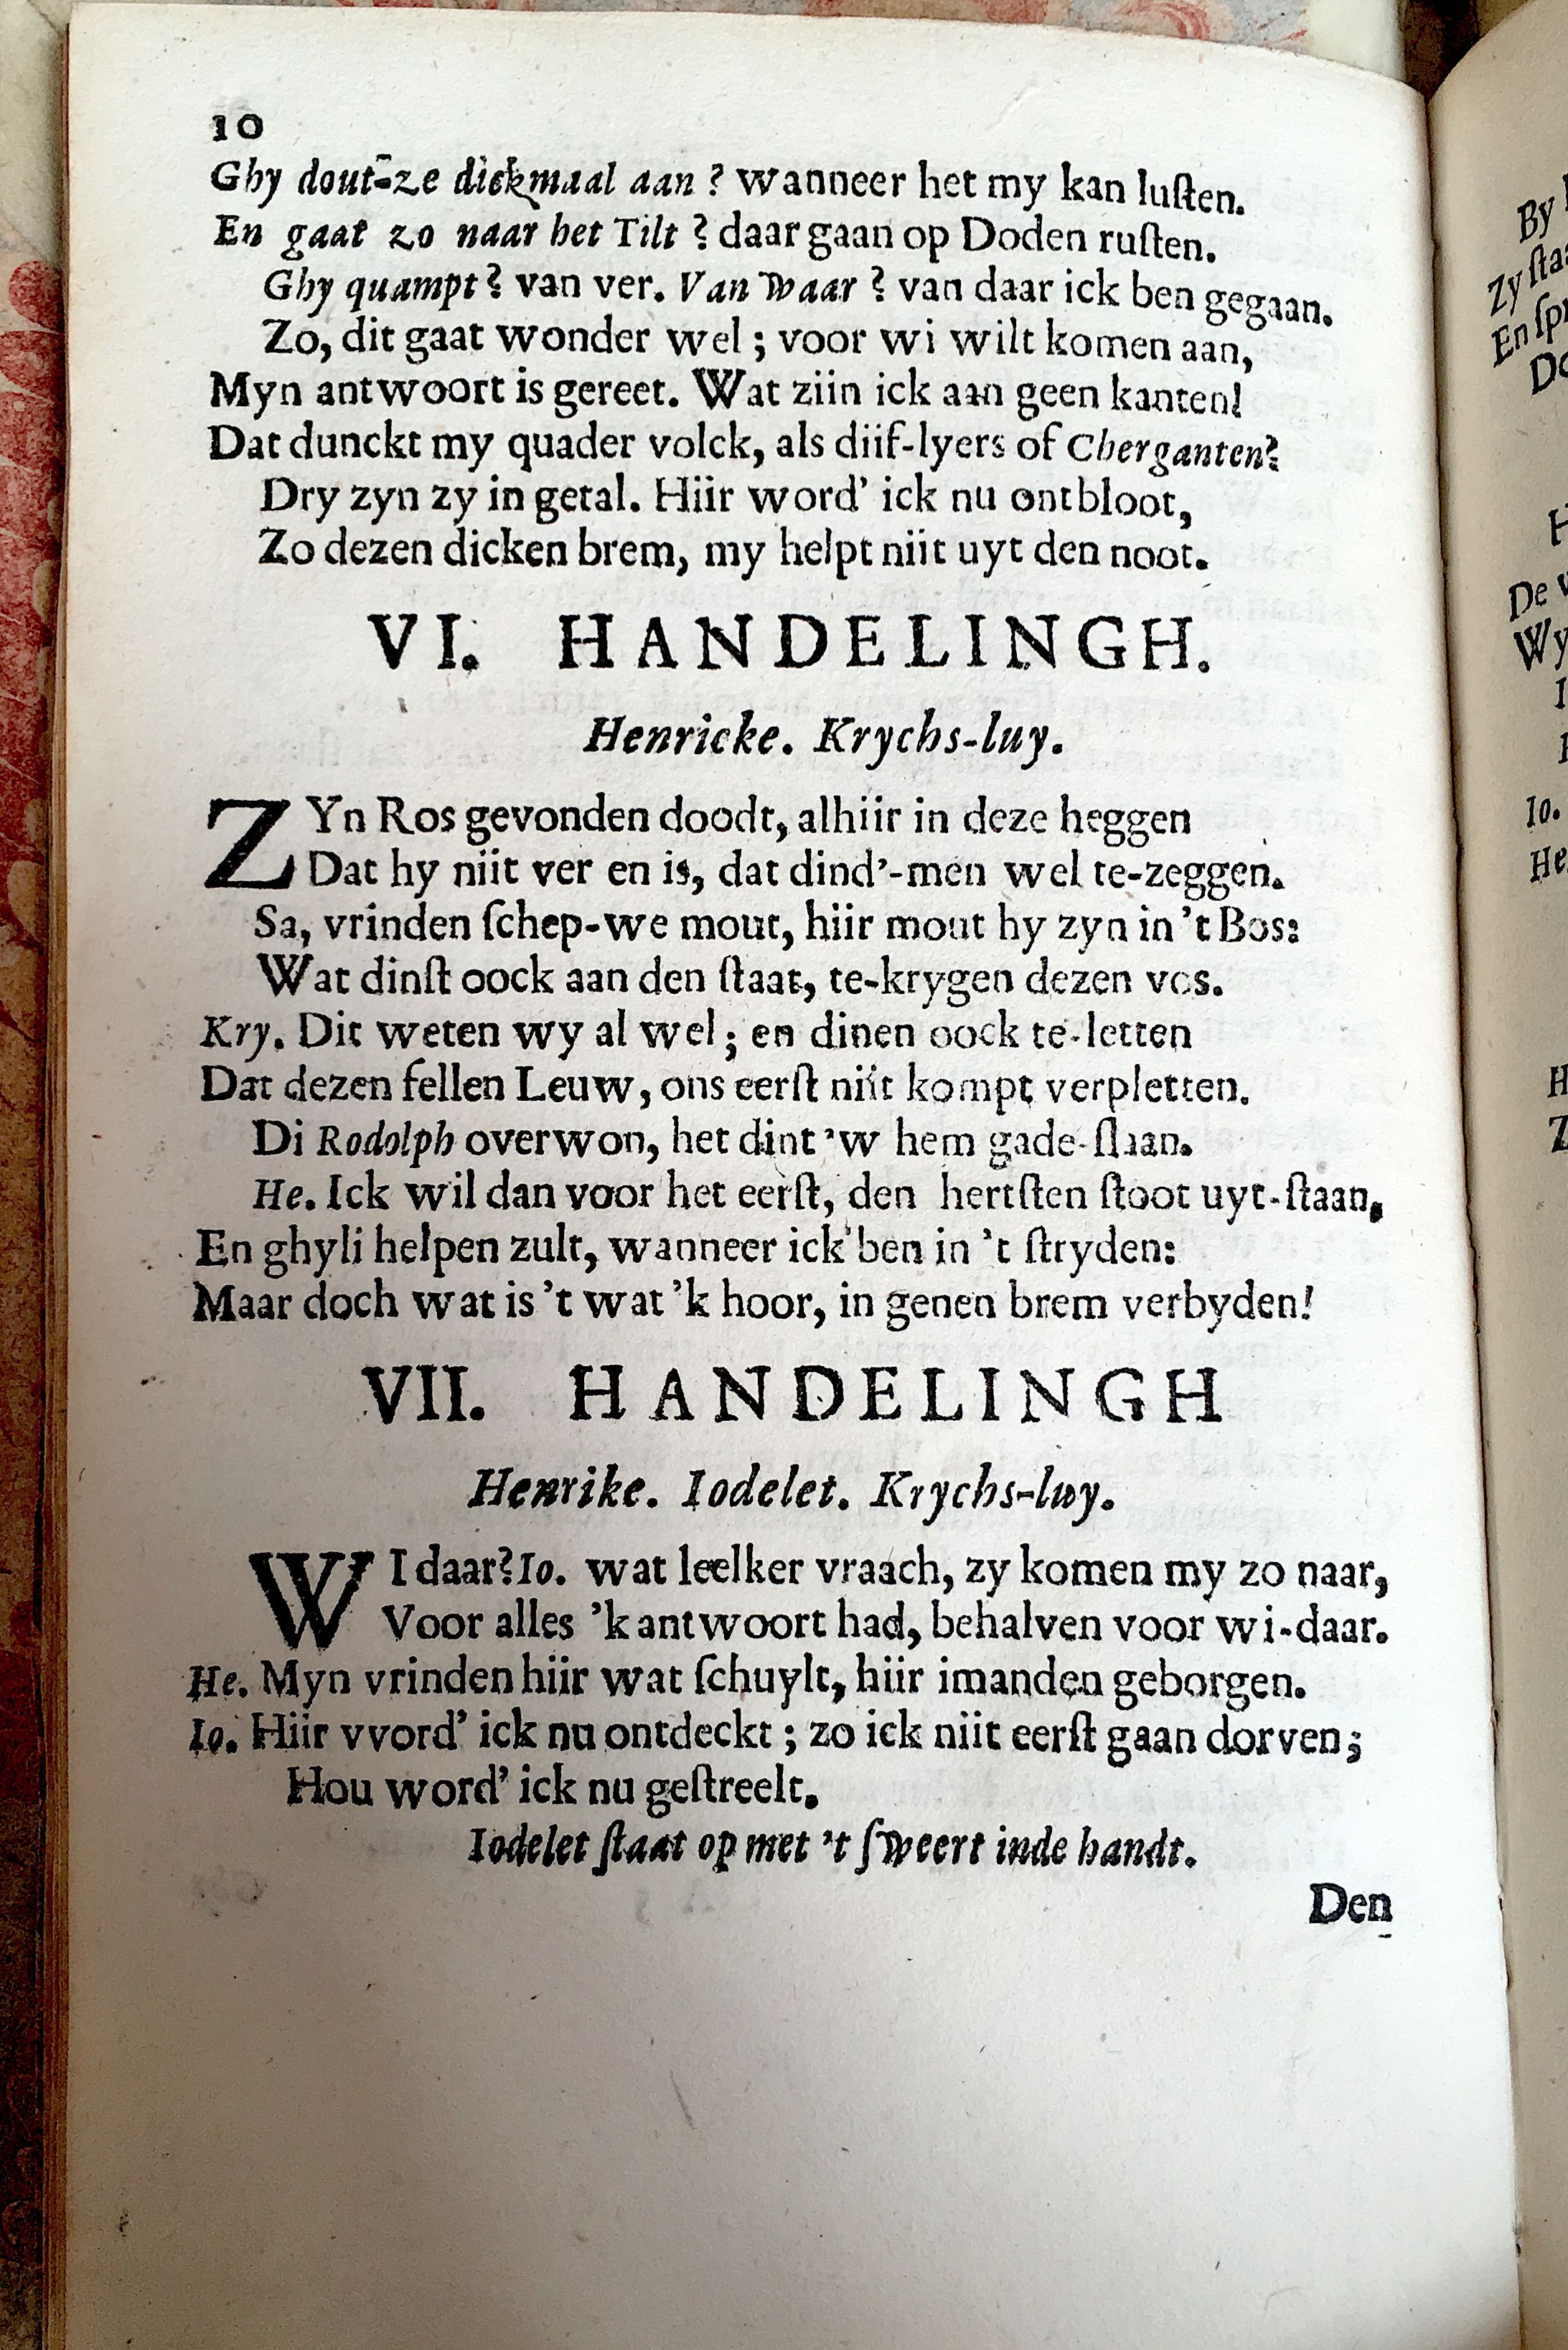 10
Ghy dout-ze dickmaal aan ? wanneer het my kan luſten.
En gaat zo naar het Tilt ? daar gaan op Doden ruſten.
Ghy quampt ? van ver. Van waar ? van daar ick ben gegaan.
Zo, dit gaat wonder wel ; voor wi wilt komen aan,
Myn antwoort is gereet. Wat ziin ick aan geen kanten!
Dat dunckt my quader volck, als diif-lyers of Cherganten?
Dry zyn zy in getal. Hiir word' ick nu ontbloot,
Zo dezen dicken brem, my helpt niit uyt den noot.
VI. HANDELINGH.
Henricke. Krychs-luy.
ZYn Ros gevonden doodt, alhiir in deze heggen
Dat hy niit ver en is, dat dind'-men wel te-zeggen.
Sa, vrinden ſchep-we mout, hiir mout hy zyn in 't Bos:
Wat dinſt oock aan den ſtaat, te-krygen dezen vos.
Kry. Dit weten wy al wel ; en dinen oock te-letten
Dat dezen fellen Leuw, ons eerſt niit kompt verpletten.
Di Rodolph overwon, het dint 'w hem gade-ſlaan.
He. Ick wil dan voor het eerſt, den hertſten ſtoot uyt-ſtaan,
En ghyli helpen zult, wanneer ick ben in 't ſtryden:
Maar doch wat is 't wat 'k hoor, in genen brem verbyden!
VII. HANDELINGH
Henrike. Iodelet. Krychs-luy.
WI daar? Io. wat leelker vraach, zy komen my zo naar,
Voor alles 'k antwoort had, behalven voor wi-daar.
He. Myn vrinden hiir wat ſchuylt, hiir imanden geborgen.
Io. Hiir vvord' ick nu ontdeckt ; zo ick niit eerſt gaan dorven ;
Hou word' ick nu geſtreelt.
Iodelet ſtaat op met 't ſweert inde handt.
Den